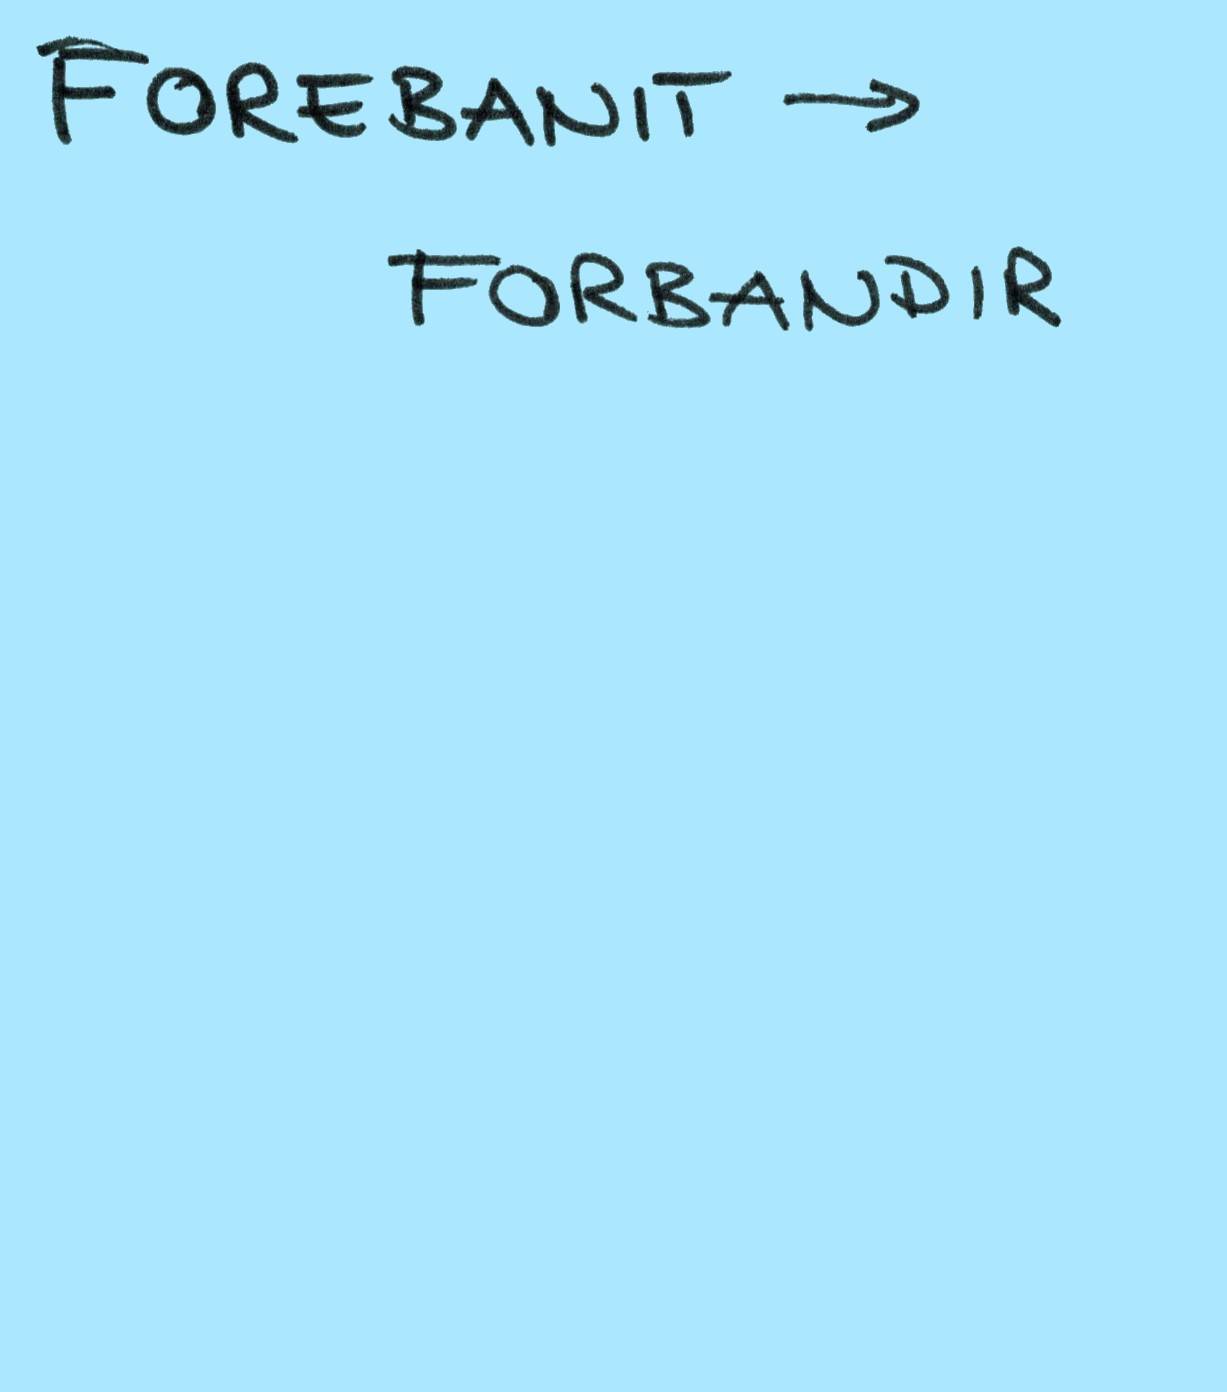 FOREBANIT →
FORBANDIR